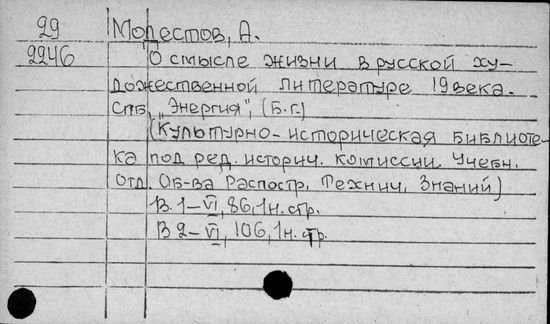 29 Мопестов, А.
2246 О смысле жизни в русской ху-
дожественной литературе 19 века.
СПБ, "Энергия", (Б.г.)
(Культурно-историческая библиоте-
ка под ред. историч. комиссии. Учебн.
отд. Об-ва Распостр. Технич. Знаний)
В. 1-VI, 86, 1н. стр.
В 2-VI, 106, 1н. стр.